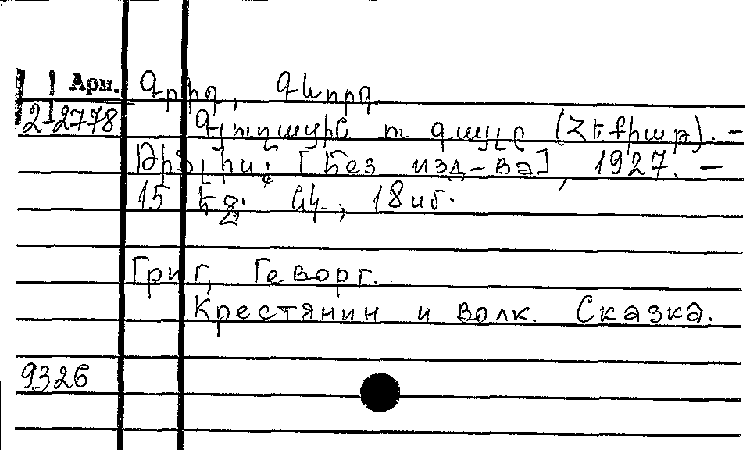 Арм. Գրիգ, Գևորգ
212778 Գյուղացին ու գայլը (Հեքիաթ). –
Թիֆլիս: [Без изд-ва], 1927. –
15 էջ. նկ., 18սմ.
Григ, Геворг.
Крестянин и волк. Сказка.
9326